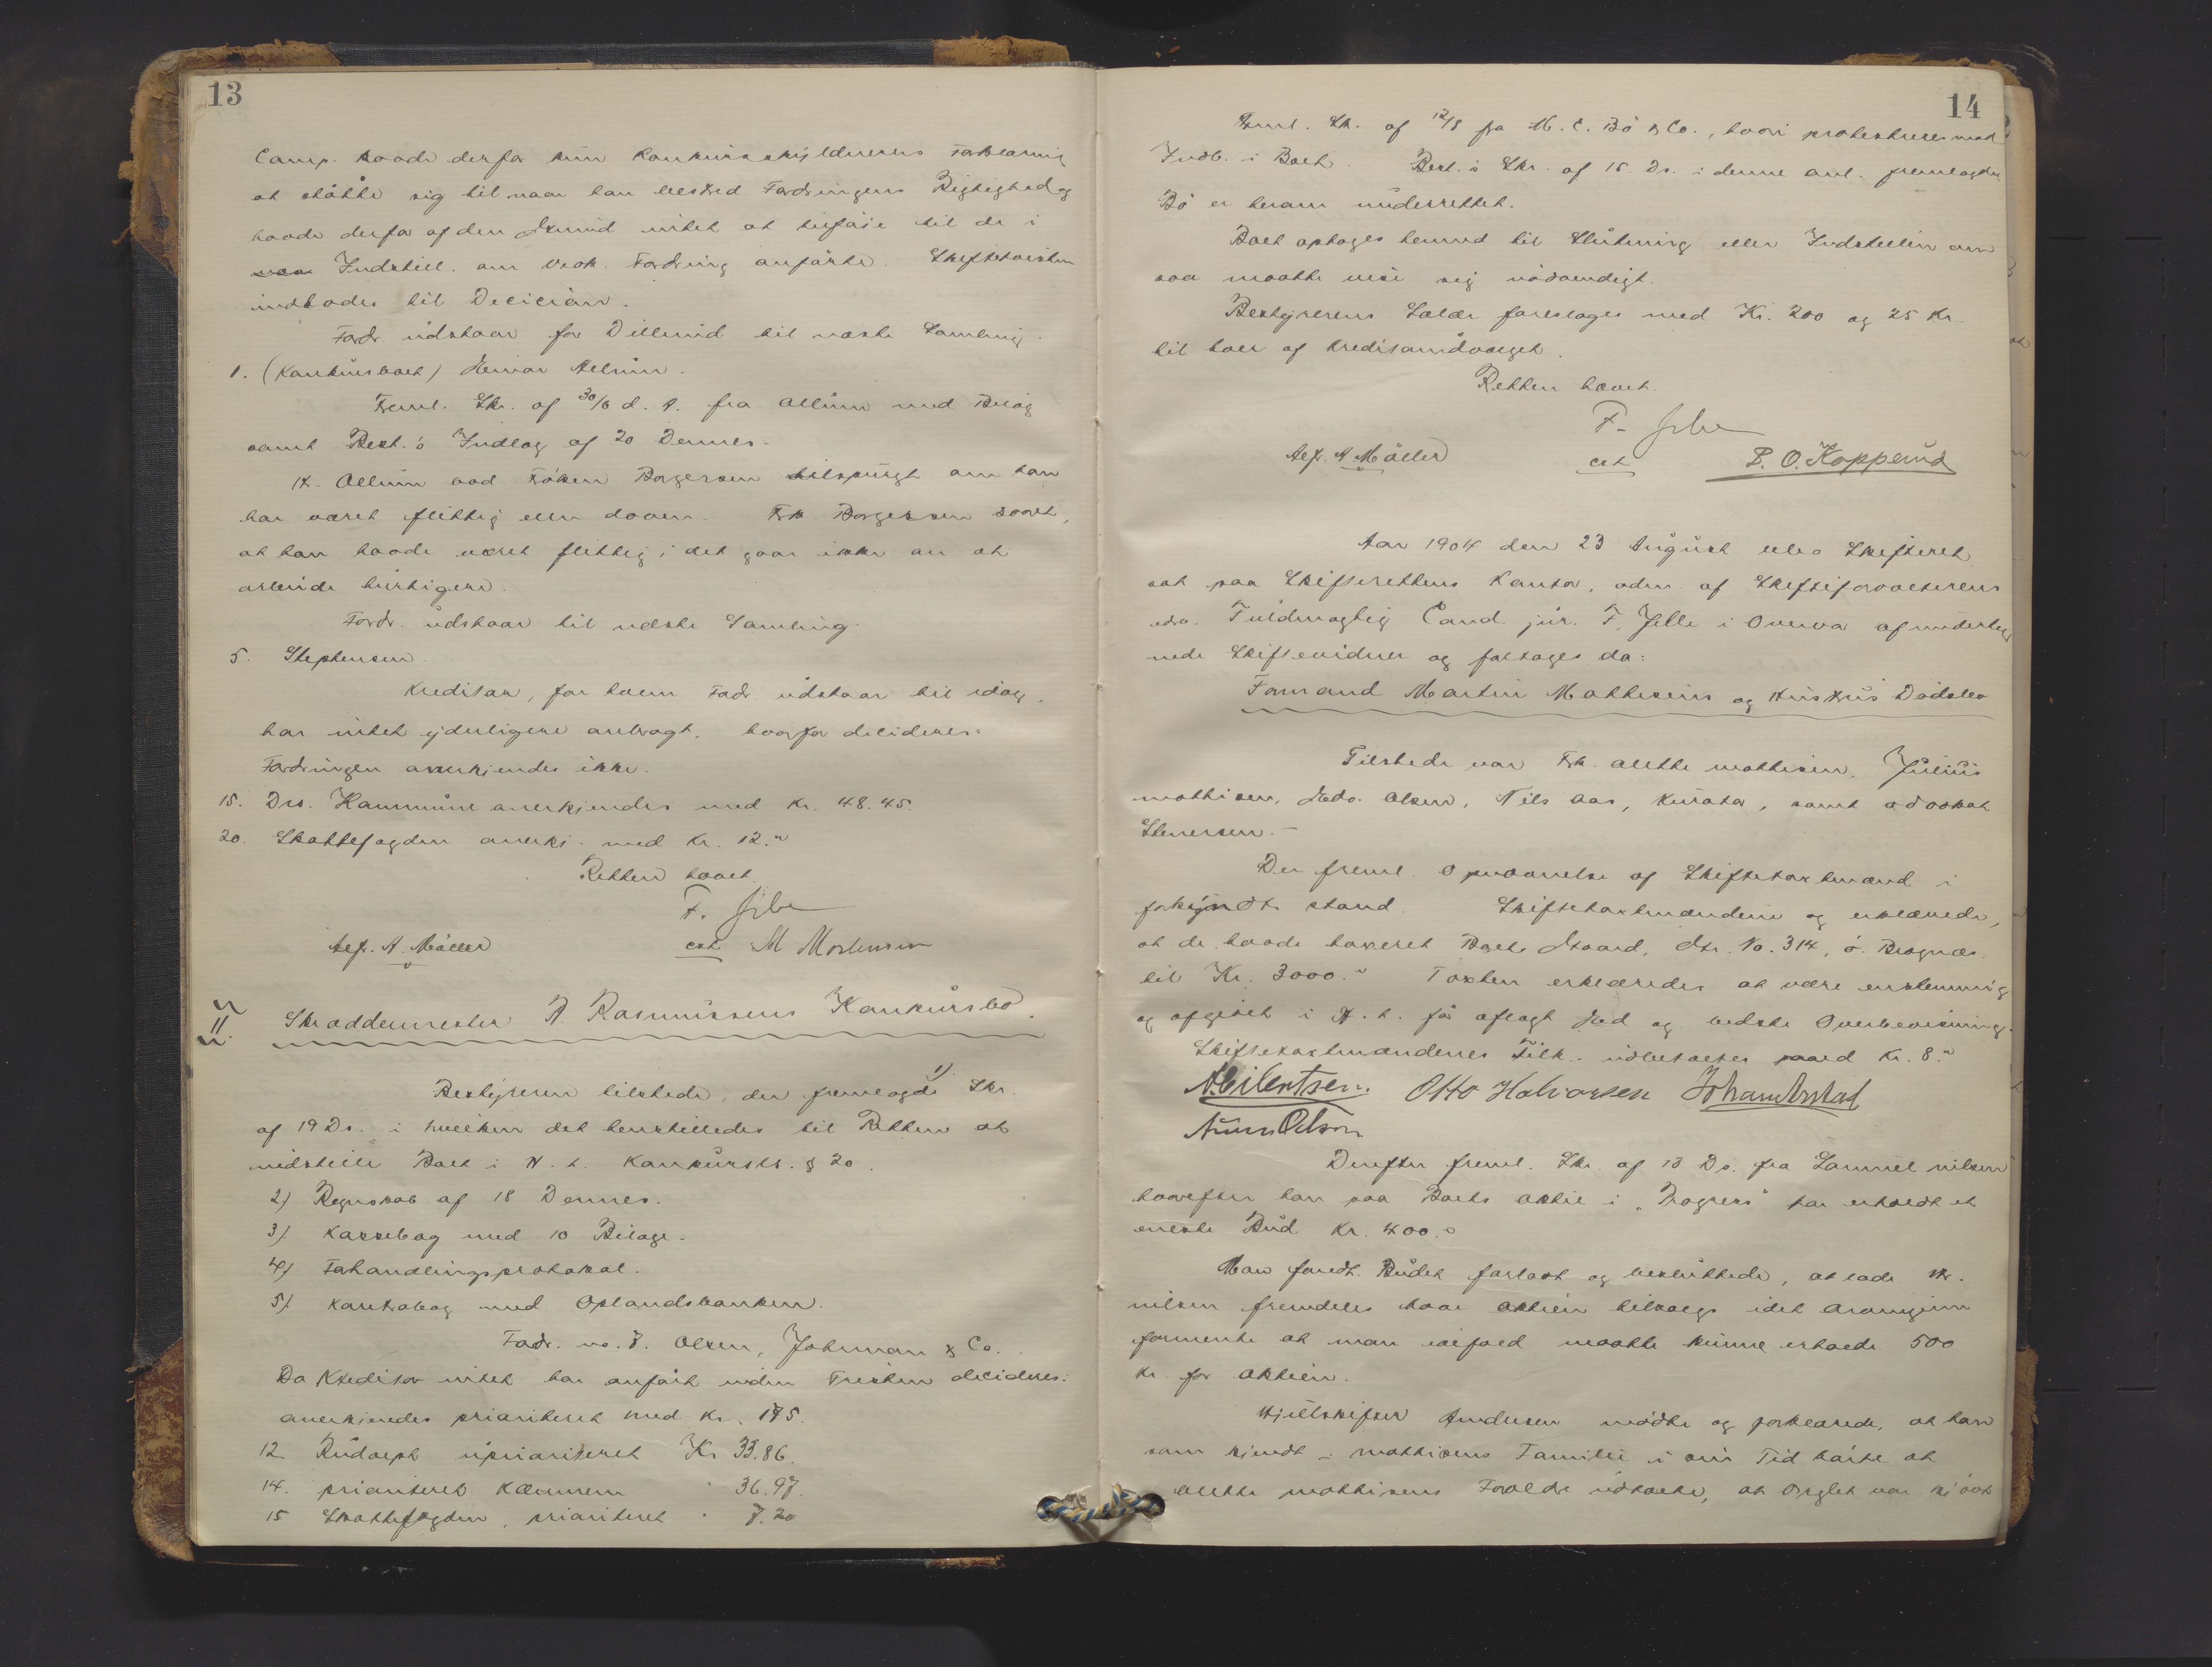 13
Comp. havde derfor kun Konkursskyldnerens Forklaring
at støtte sig til naar han bestred Fordringens Rigtighed og
havde derfor af den Grund intet at tilføie til de i
Indstill. om vedk. Fordring anførte. Skifteretten
indbødes til Decision.
Fordr. udstaar for Dillerud til næste Samling.
1. (Konkursboet) Allum.
Freml. Skr. af 30/6 d. A. fra Allum med Bilag
samt Best.s Indlæg af 20 Dennes.
H. Allum lod Frøken Borgersen tilspørge om han
har været flittig eller doven. Frk. Borgersen svaret,
at han havde været flittig; det gaar ikke an at
arbeide hurtigere.
Fordr. udstaar til næste Samling.
5. Stephensen.
Kreditor, for hvem Fordr. udstaar til idag,
har intet yderligere anbragt, hvorfor decideres:
Fordringen anerkjendes ikke.
15. Drs. Kommune anerkjendes med Kr. 48.45.
20. Skattefogden anerkj. med Kr. 12.
Retten hævet.
F. Jelbe
Alf. A. Møller
cst M Mortensen
II Skræddermester A. Rasmussens Konkursbo.
Bestyreren tilstede, der fremlagde 1) Skr.
af 19 Ds. i hvilken det henstilledes til Retten at
indstille Boet i H. t. Konkursl. § 20.
2) Regnskab af 18 Dennes.
3) Kassebog med 10 Bilage.
4) Forhandlingsprotokol.
5) Kontrabog med Oplandsbanken.
Fordr. no. 7. Olsen, Johnman & Co.
Da Kreditor intet har anført inden Fristen decideres:
anerkjendes prioriteret med Kr. 175.
12 Rudolph uprioriteret Kr 33.86.
14. prioriteret Kæmneren " 36.97.
15 Skattefogden, prioriteret " 7.20
14
Freml. Skr. af 12/8 fra M. C. Bö & Co., hvori protesteres mod
Indb. i Boet. Best.s Skr. af 15. Ds. i denne anl. fremlagdes
Bö er herom underrettet.
Boet optages hermed til Slutning eller Indstillin om
saa maatte vise sig nødvendigt.
Bestyrerens Salær foreslages med Kr. 200 og 25 Kr.
til hver af Kreditorudvalget.
Retten hævet.
F. Jelbe
Alf. A Møller
cst P. O. Kopperud
Aar 1904 den 23 August blev Skifteret
sat paa Skifterettens Kontor, adm. af Skifteforvalterens
edsv. Fuldmægtig Cand. jur. F. Jelbe i Overvær af underteg
nede Skiftevidner og foretoges da:
Formand Martin Mathiesens og Hustrus Dødsbo
Tilstede var Frk. Alette Mathisen, Julius
Mathisen, Olsen, Nils Aas, Kurator, samt Advokat
Stenersen.-
Der freml. Opnævnelse af Skiftetaxtmænd i
forkyndt stand. Skiftetaxtmændene og erklærede,
at de havde taxeret Boets Gaard, Gr. No. 314, ö. Bragnæs
til Kr. 3000. Taxten erklæredes at være enstemmig
og afgivet i H. t. før aflagt Ed og bedste Overbevisning.
Skiftetaxtmændenes Tilk. udbetaltes med Kr. 8.
A. Eilertsen. Otto Halvorsen Johan Arstad
Anun Olsen
Derefter freml. Skr. af 13 Ds. fra Samuel Nilsen
hvorefter han paa Boets Aktie i "Progress" har erholdt et
eneste Bud Kr. 400.
Man fandt Budet forlavt og besluttede, at lade Hr.
Nilsen fremdeles have Aktien tilsalgs idet Arvingerne
formente at man ialfald maatte kunne erholde 500
Kr. for Aktien.
Hjulskifter Andersen mødte og forklarede, at han
som kjendt i Mathisens Familie i sin Tid hørte at
Alette Mathisens Forældre udtalte, at Orglet var kjøbt